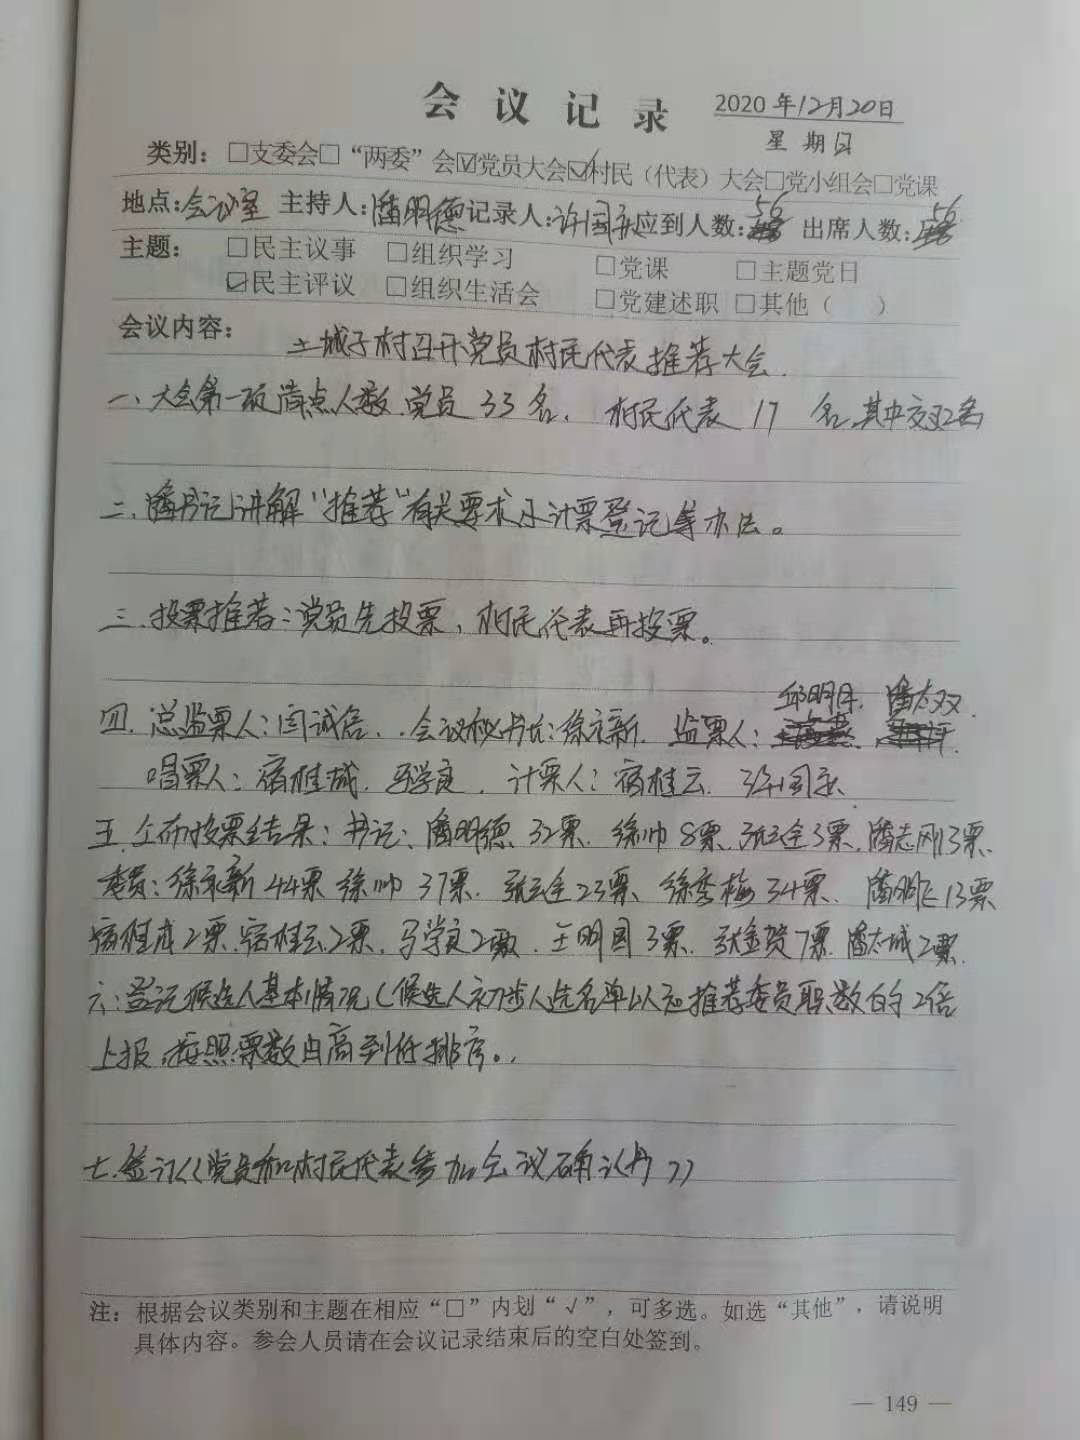 会议记录 2020年12月20日
星期日
类别：□支委会□“两委”会☑党员大会☑村民（代表）大会□党小组会□党课
地点：会议室 主持人：潘明德 记录人：许国永 应到人数：56 出席人数：56
主题： □民主议事 □组织学习 □党课 □主题党日
☑民主评议 □组织生活会 □党建述职 □其他（ ）
会议内容：
土城子村召开党员村民代表推荐大会.
一、大会第一项清点人数.党员 33 名、村民代表 17 名,其中交叉2名
二、潘书记讲解“推荐”有关要求及计票登记等办法。
三、投票推荐：党员先投票，村民代表再投票。
邱明月、潘太双.
四、总监票人：闫诚信、会议秘书长：徐永新. 监票人：
唱票人：宿桂城. 马学良. 计票人：宿桂云. 许国永
五、公布投票结果：书记：潘明德 32票. 徐帅 8票. 张金3票. 潘志刚13票.
委员：徐永新 44票 徐帅 37票. 张金23票、徐秀梅34票. 潘明飞13票
宿桂成2票.宿桂云.2票.马学良2票. 王明国3票. 张金贺7票.潘太城2票.
六：登记候选人基本情况（候选人初步人选名单以应推荐委员职数的2倍
上报,按照票数由高到低排序。.
七.签订《党员和村民代表参加会议确认册》
注：根据会议类别和主题在相应“□”内划“√”，可多选。如选“其他”，请说明
具体内容。参会人员请在会议记录结束后的空白处签到。
— 149 —